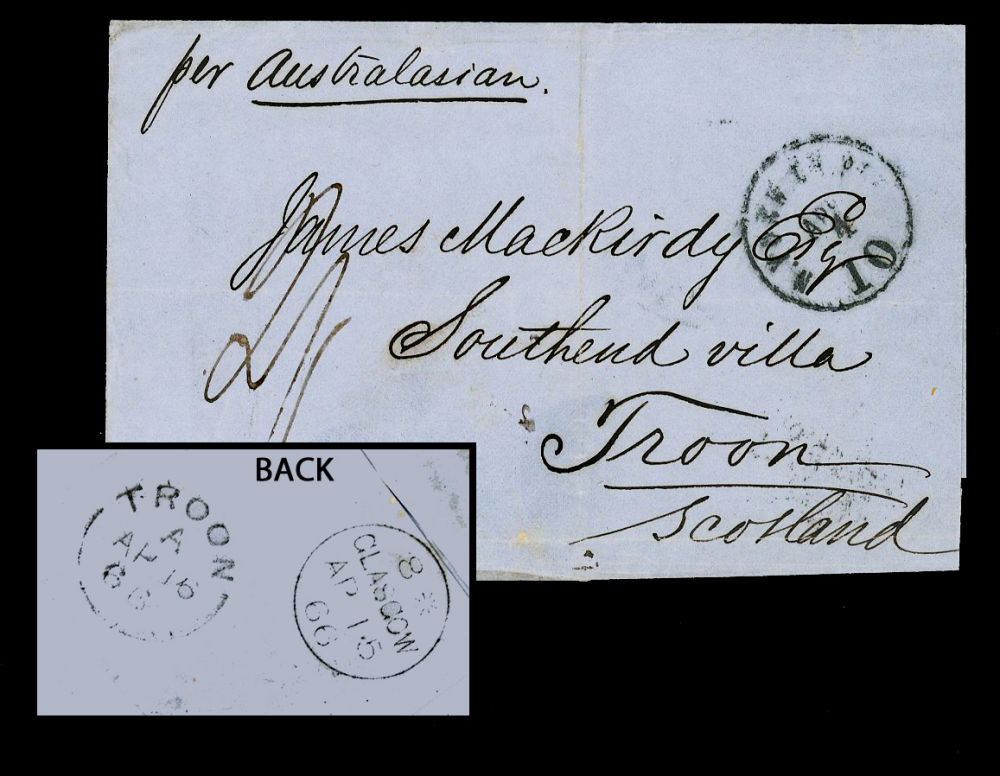 per Australasian.
James Mackirdy Esq
Southend villa
Troon
Scotland
10
BACK
TROON
A
AP 16
66
8
GLASGOW
AP 15
66